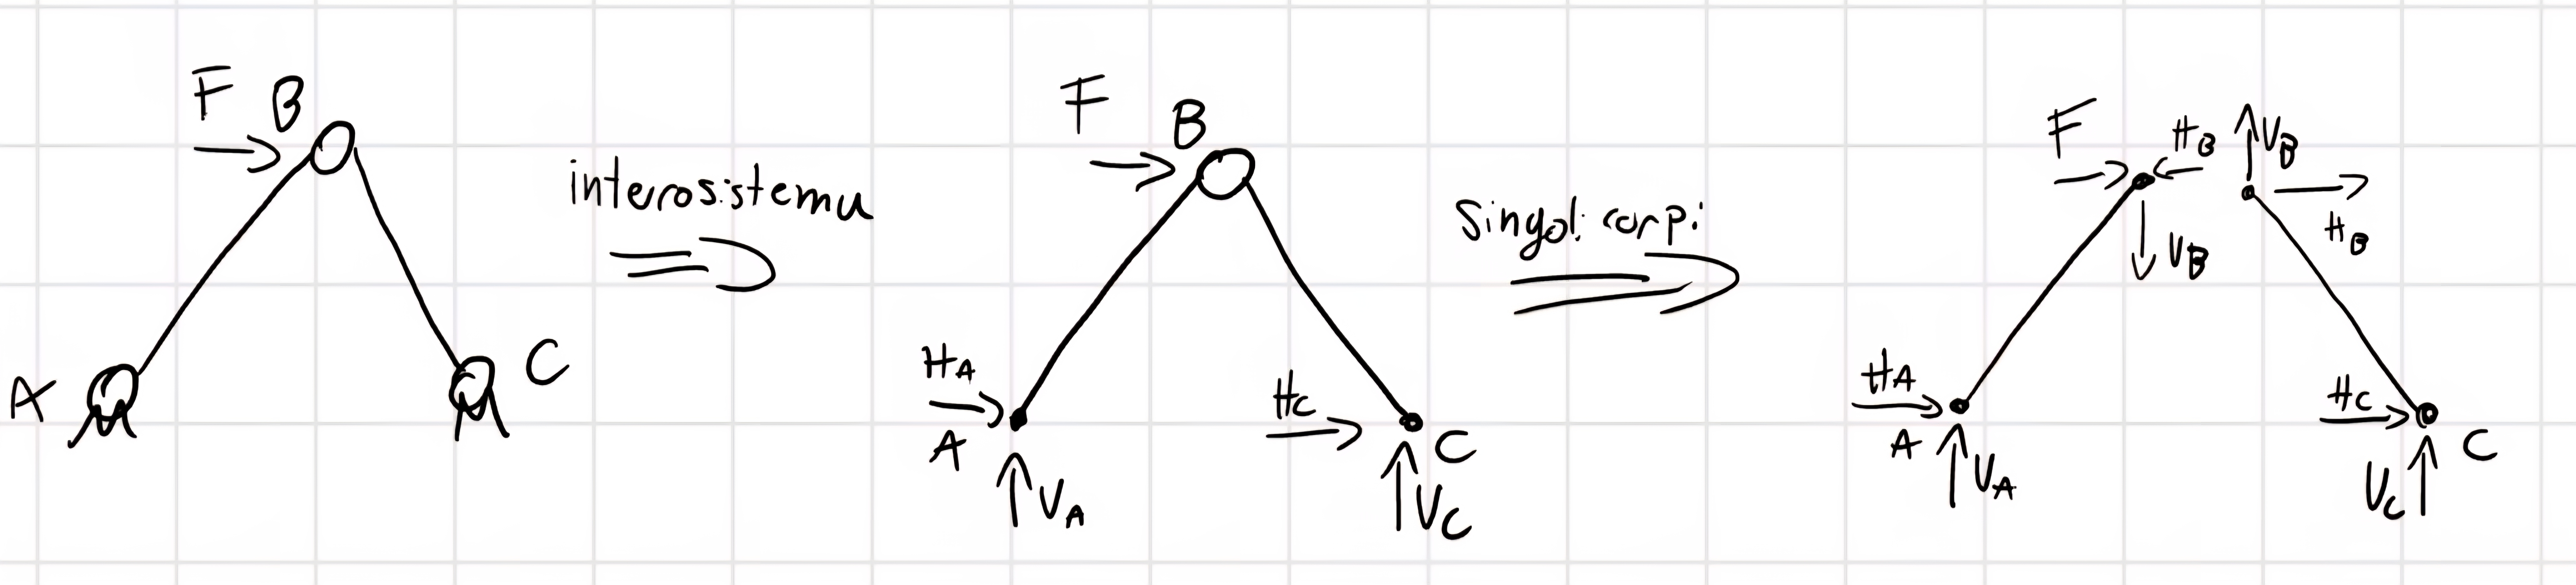 F B
A
C
interosistema
F
B
HA
A
VA
HC
C
VC
Singoli corpi
F
HB
VB
VB
HB
HA
A
VA
HC
VC
C